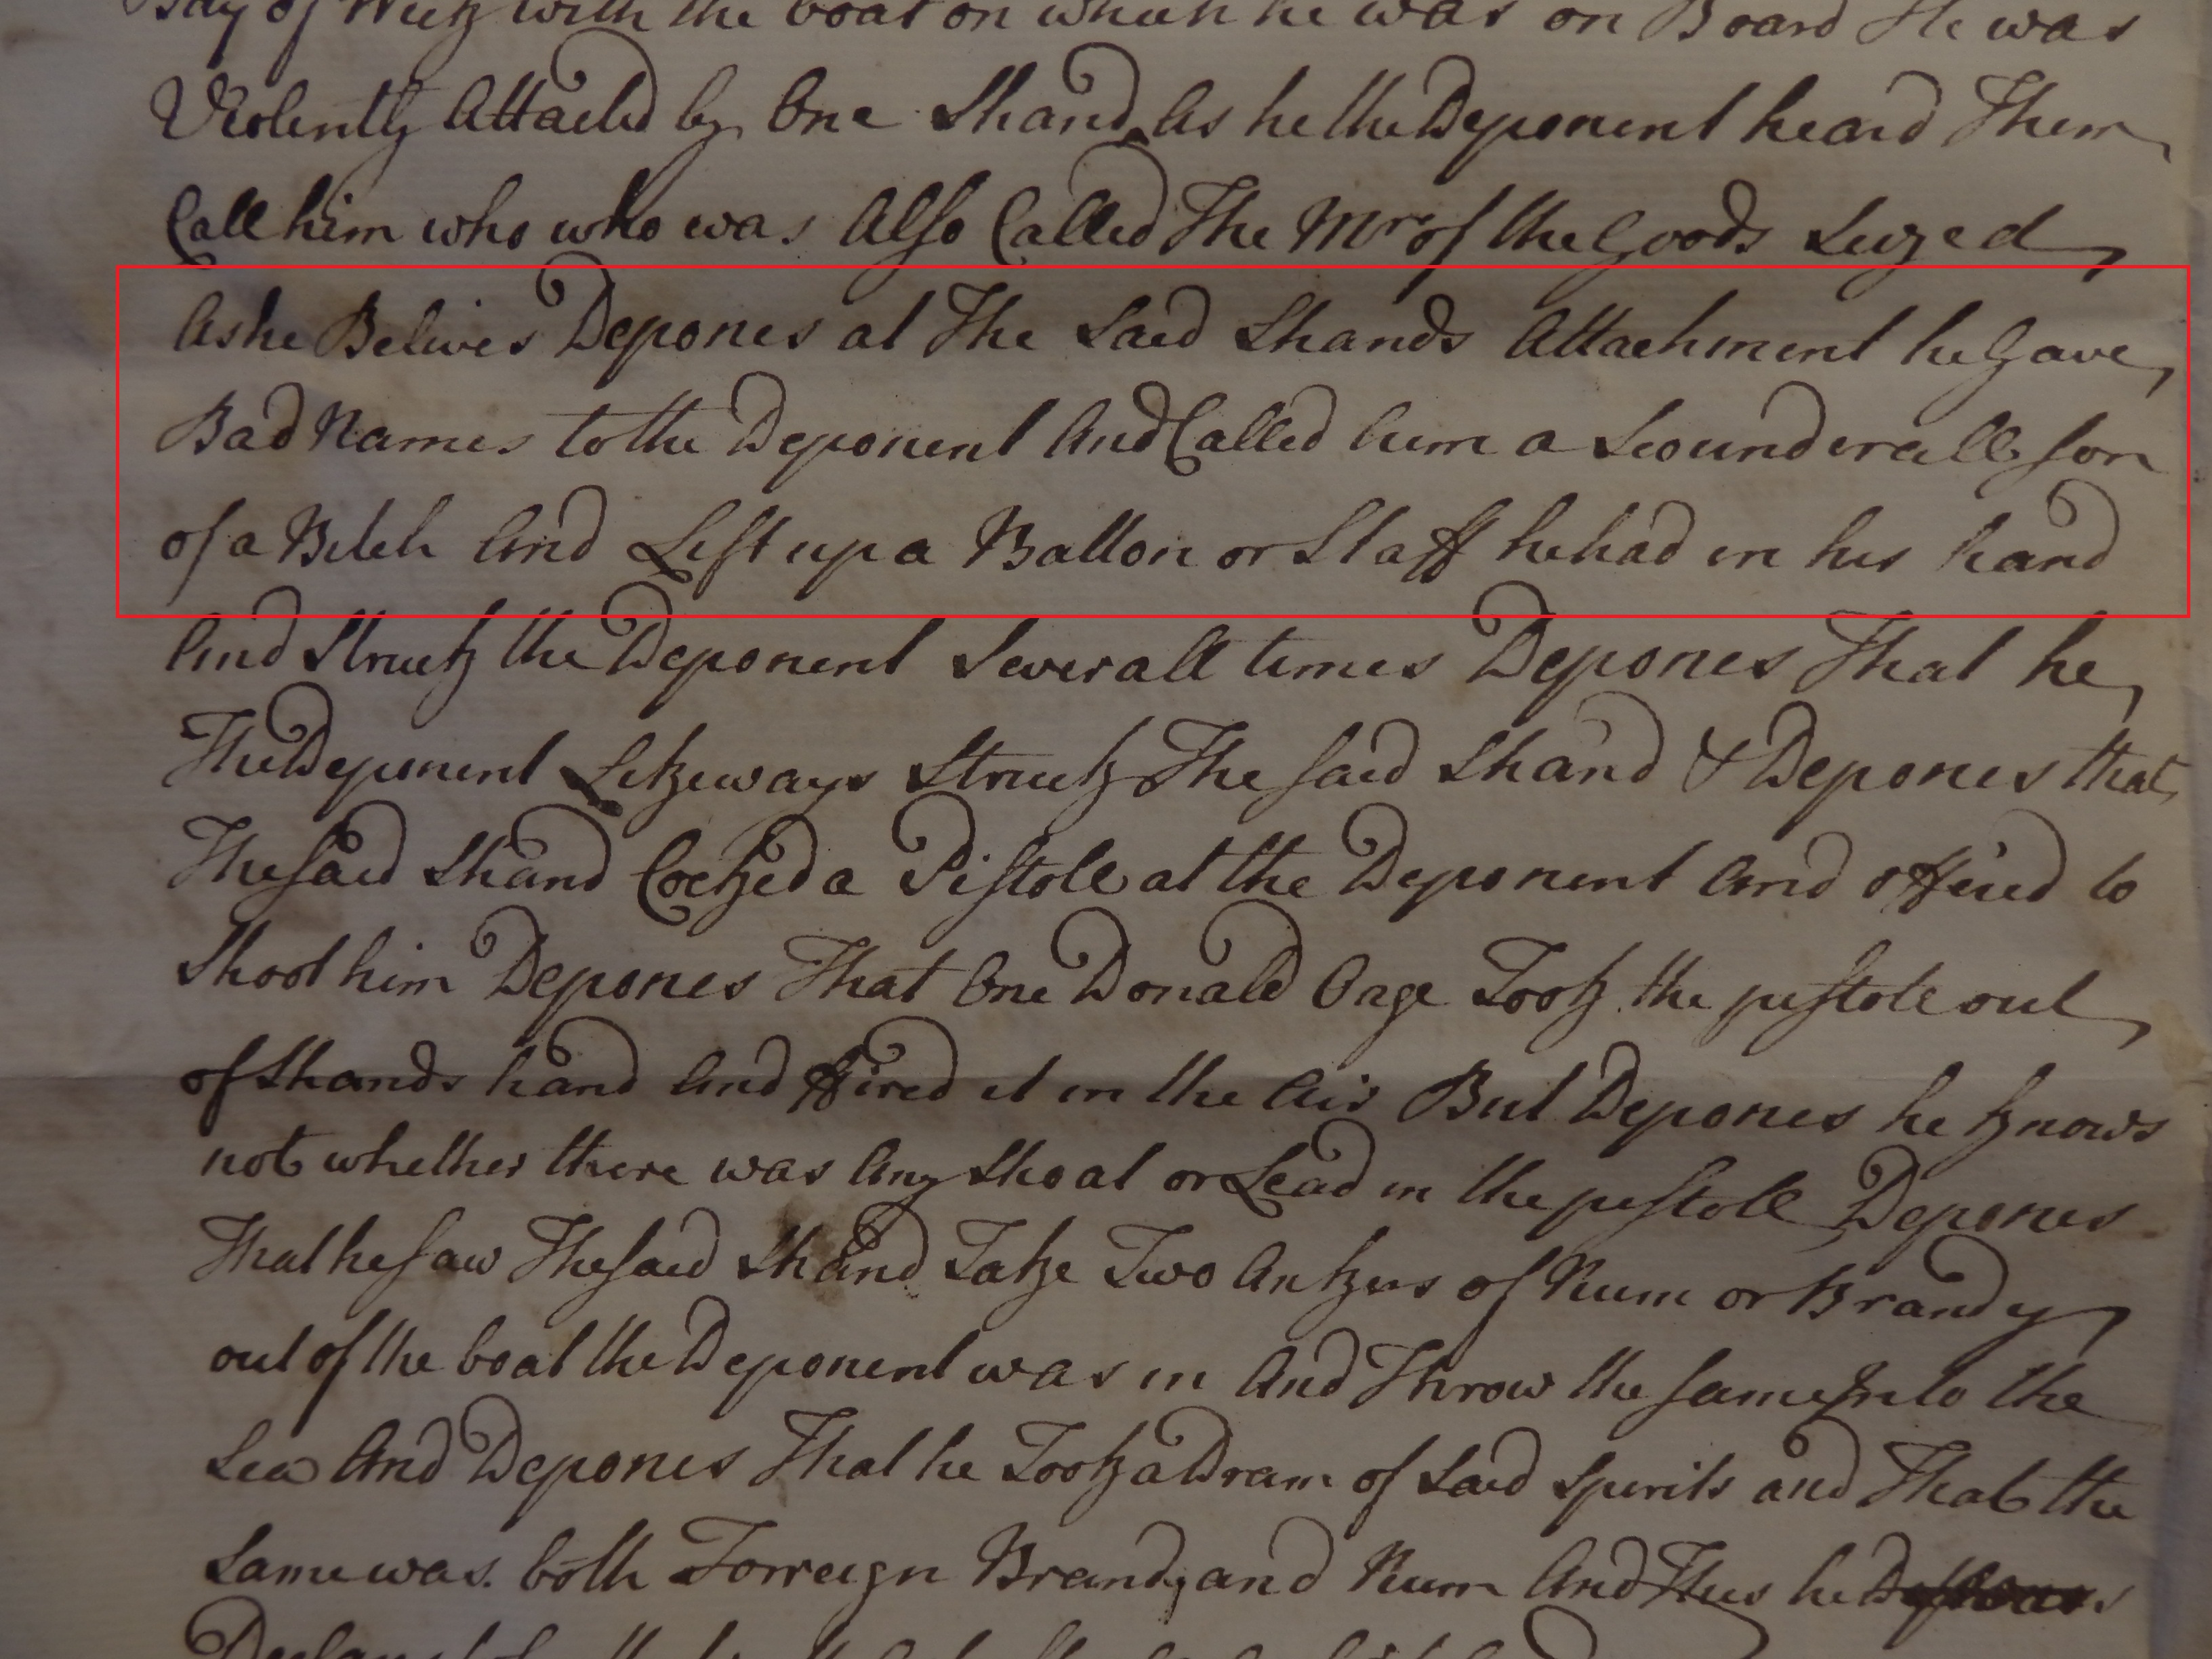 Bay of Wick with the boat on which he was on Board He was
Violently Attacked by One Shand As he the Deponent heard Them
Call him who who was Also Called The Mr of the Goods Seized
As he Belives Depones at The Said Shands Attachment he Gave
Bad Names to the Deponent And Called him a Scounderall son
of a Bitch And Lift up a Batton or Staff he had in his hand
And Struck the Deponent Severall times Depones That he
The Deponent Likeways Struck The said Shand & Depones that
The said Shand Cocked a Pistole at the Deponent And offered to
Shoot him Depones That One Donald Oage Took the pistole out
of Shands hand And ffired it in the Air But Depones he knows
not whether there was Any Shoat or Lead in the pistoll Depones
That he saw The said Shand Take Two Ankers of Rum or Brandy
out of the boat the Deponent was in And Throw the same Into the
Sea And Depones That he Took a Dram of Said Spirits and That the
Same was both Forreign Brandy and Rum And Thus he